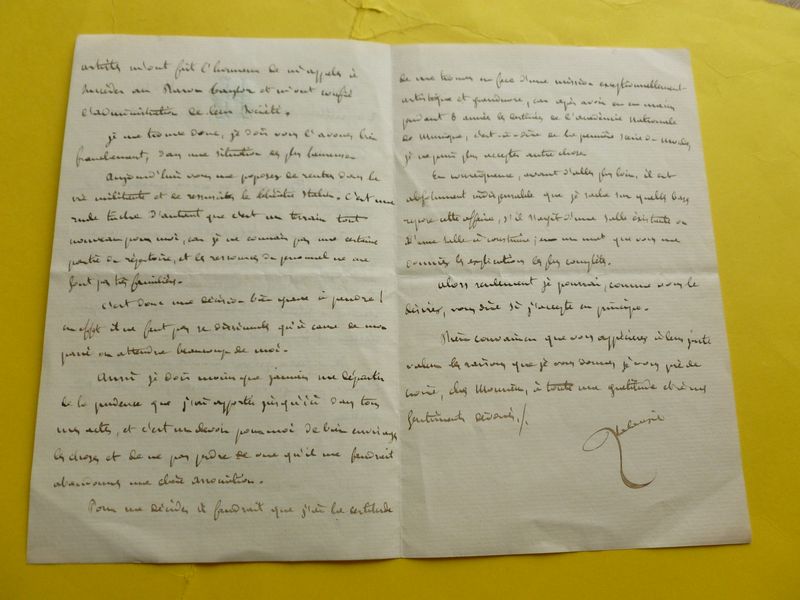 artistes m'ont fait l'honneur de m'appeler à
succéder au Baron Taylor et m'ont confié
l'administration de leur Société.
je me trouve donc, je dois vous l'avouer bien
franchement, dans une situation des plus heureuses
Aujourd'hui vous me proposez de rentrer dans la
vie militante et de ressusciter le théâtre Italien. C'est une
rude tâche d'autant que c'est un terrain tout
nouveau pour moi, car je ne connais pas une certaine
partie du répertoire, et les ressources du personnel ne me
sont pas très familières.
C'est donc une décision bien grave à prendre !
en effet il ne faut pas se dissimuler qu'à cause de mon
passé on attendra beaucoup de moi.
Aussi je dois moins que jamais me départir
de la prudence que j'ai apportée jusqu'ici dans tous
mes actes, et c'est un devoir pour moi de bien envisager
les choses et de ne pas perdre de vue qu'il me faudrait
abandonner une chère association.
Pour me décider il faudrait que j'aie la certitude
de me trouver en face d'une mission exceptionnellement
artistique et grandiose, car après avoir eu en main
pendant 8 années les destinées de l'académie Nationale
de Musique, c'est-à-dire de la première scène du monde,
je ne puis plus accepter autre chose.
En conséquence, avant d'aller plus loin, il est
absolument indispensable que je sache sur quelles bases
repose cette affaire, s'il s'agit d'une salle existante ou
d'une salle à construire ; en un mot que vous me
donniez les explications les plus complètes.
Alors seulement je pourrai, comme vous le
désirez, vous dire si j'accepte en principe.
Bien convaincu que vous apprécierez à leur juste
valeur les raisons que je vous donne, je vous prie de
croire, cher Monsieur, à toute ma gratitude et à mes
sentiments dévoués ./.